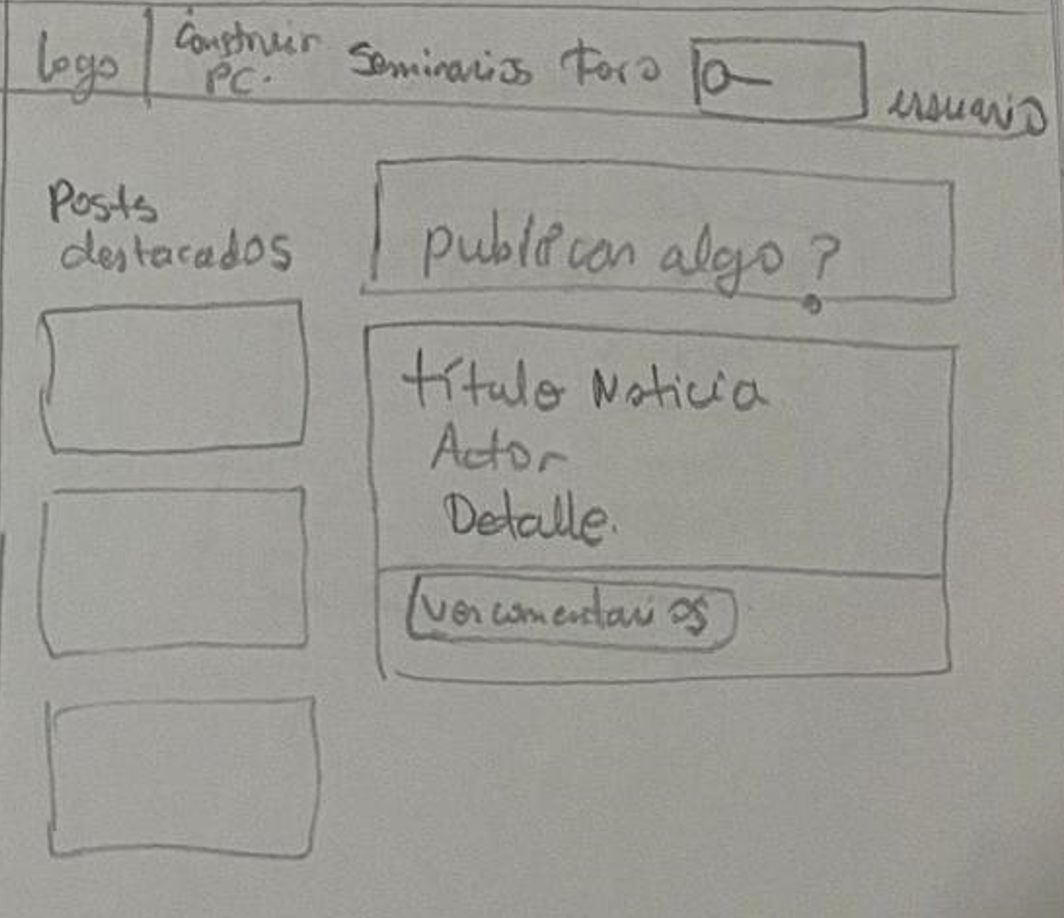 logo
Construir
PC.
Seminarios
Foro
usuario
Posts
destacados
publican algo?
título Noticia
Actor
Detalle.
ver comentarios